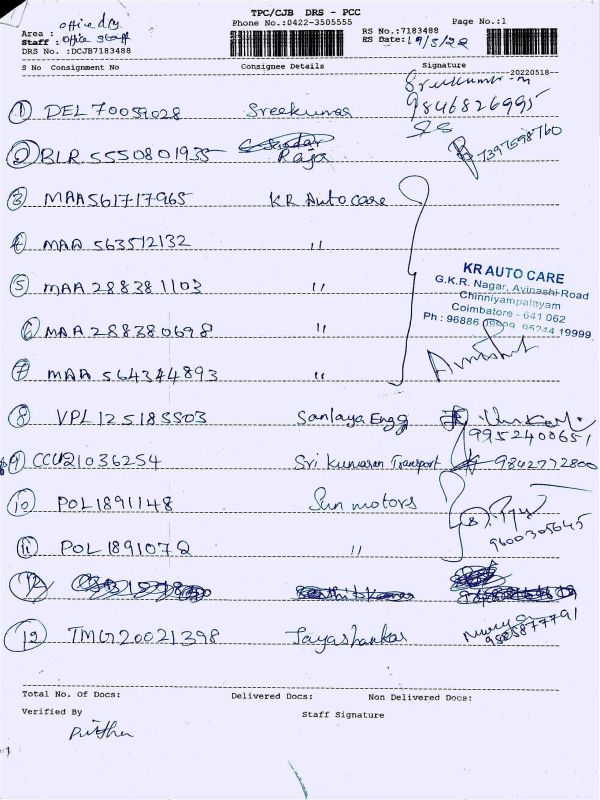 TPC/CJB DRS - PCC
Phone No.:0422-3505555
Page No.:1
Area : office dly
Staff : office staff
DRS No. :DCJB7183488
RS No.:7183488
RS Date: 19/5/22
S No Consignment No Consignee Details Signature
20220518
Sreekumar
① DEL 70059028 Sreekumar 9846826995
② BLR 5550801935 Raja 7397598760
③ MAA561717965 KR Auto care
4 MAA 563512132 "
⑤ MAA 288381103 "
⑥ MAA 288380698 "
⑦ MAA 564344893 "
KR AUTO CARE
G.K.R. Nagar, Avinashi Road
Chinniyampalayam
Coimbatore - 641 062
Ph : 96886 19999, 95244 19999
⑧ VPL 125183503 Sanlaya Engg
9952400651
⑨ CCU21036254 Sri Kumaran Transport 9842772800
⑩ POL 1891148 Sun motors
9600305645
⑪ POL 1891072 "
⑫ TMG20021398 Jayashankar
Total No. Of Docs: Delivered Docs: Non Delivered Docs:
Verified By Staff Signature